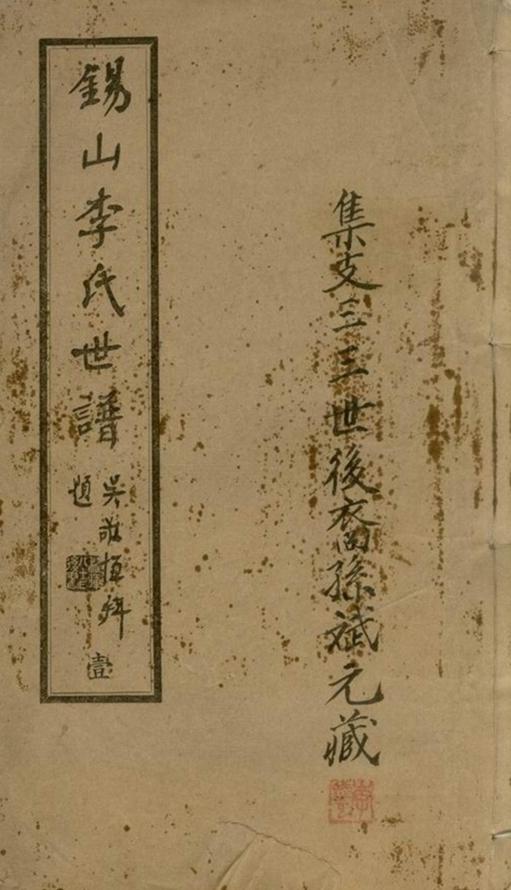 集支三王世後裔孫斌元藏
錫山李氏世譜
吳敬恒
題
壹